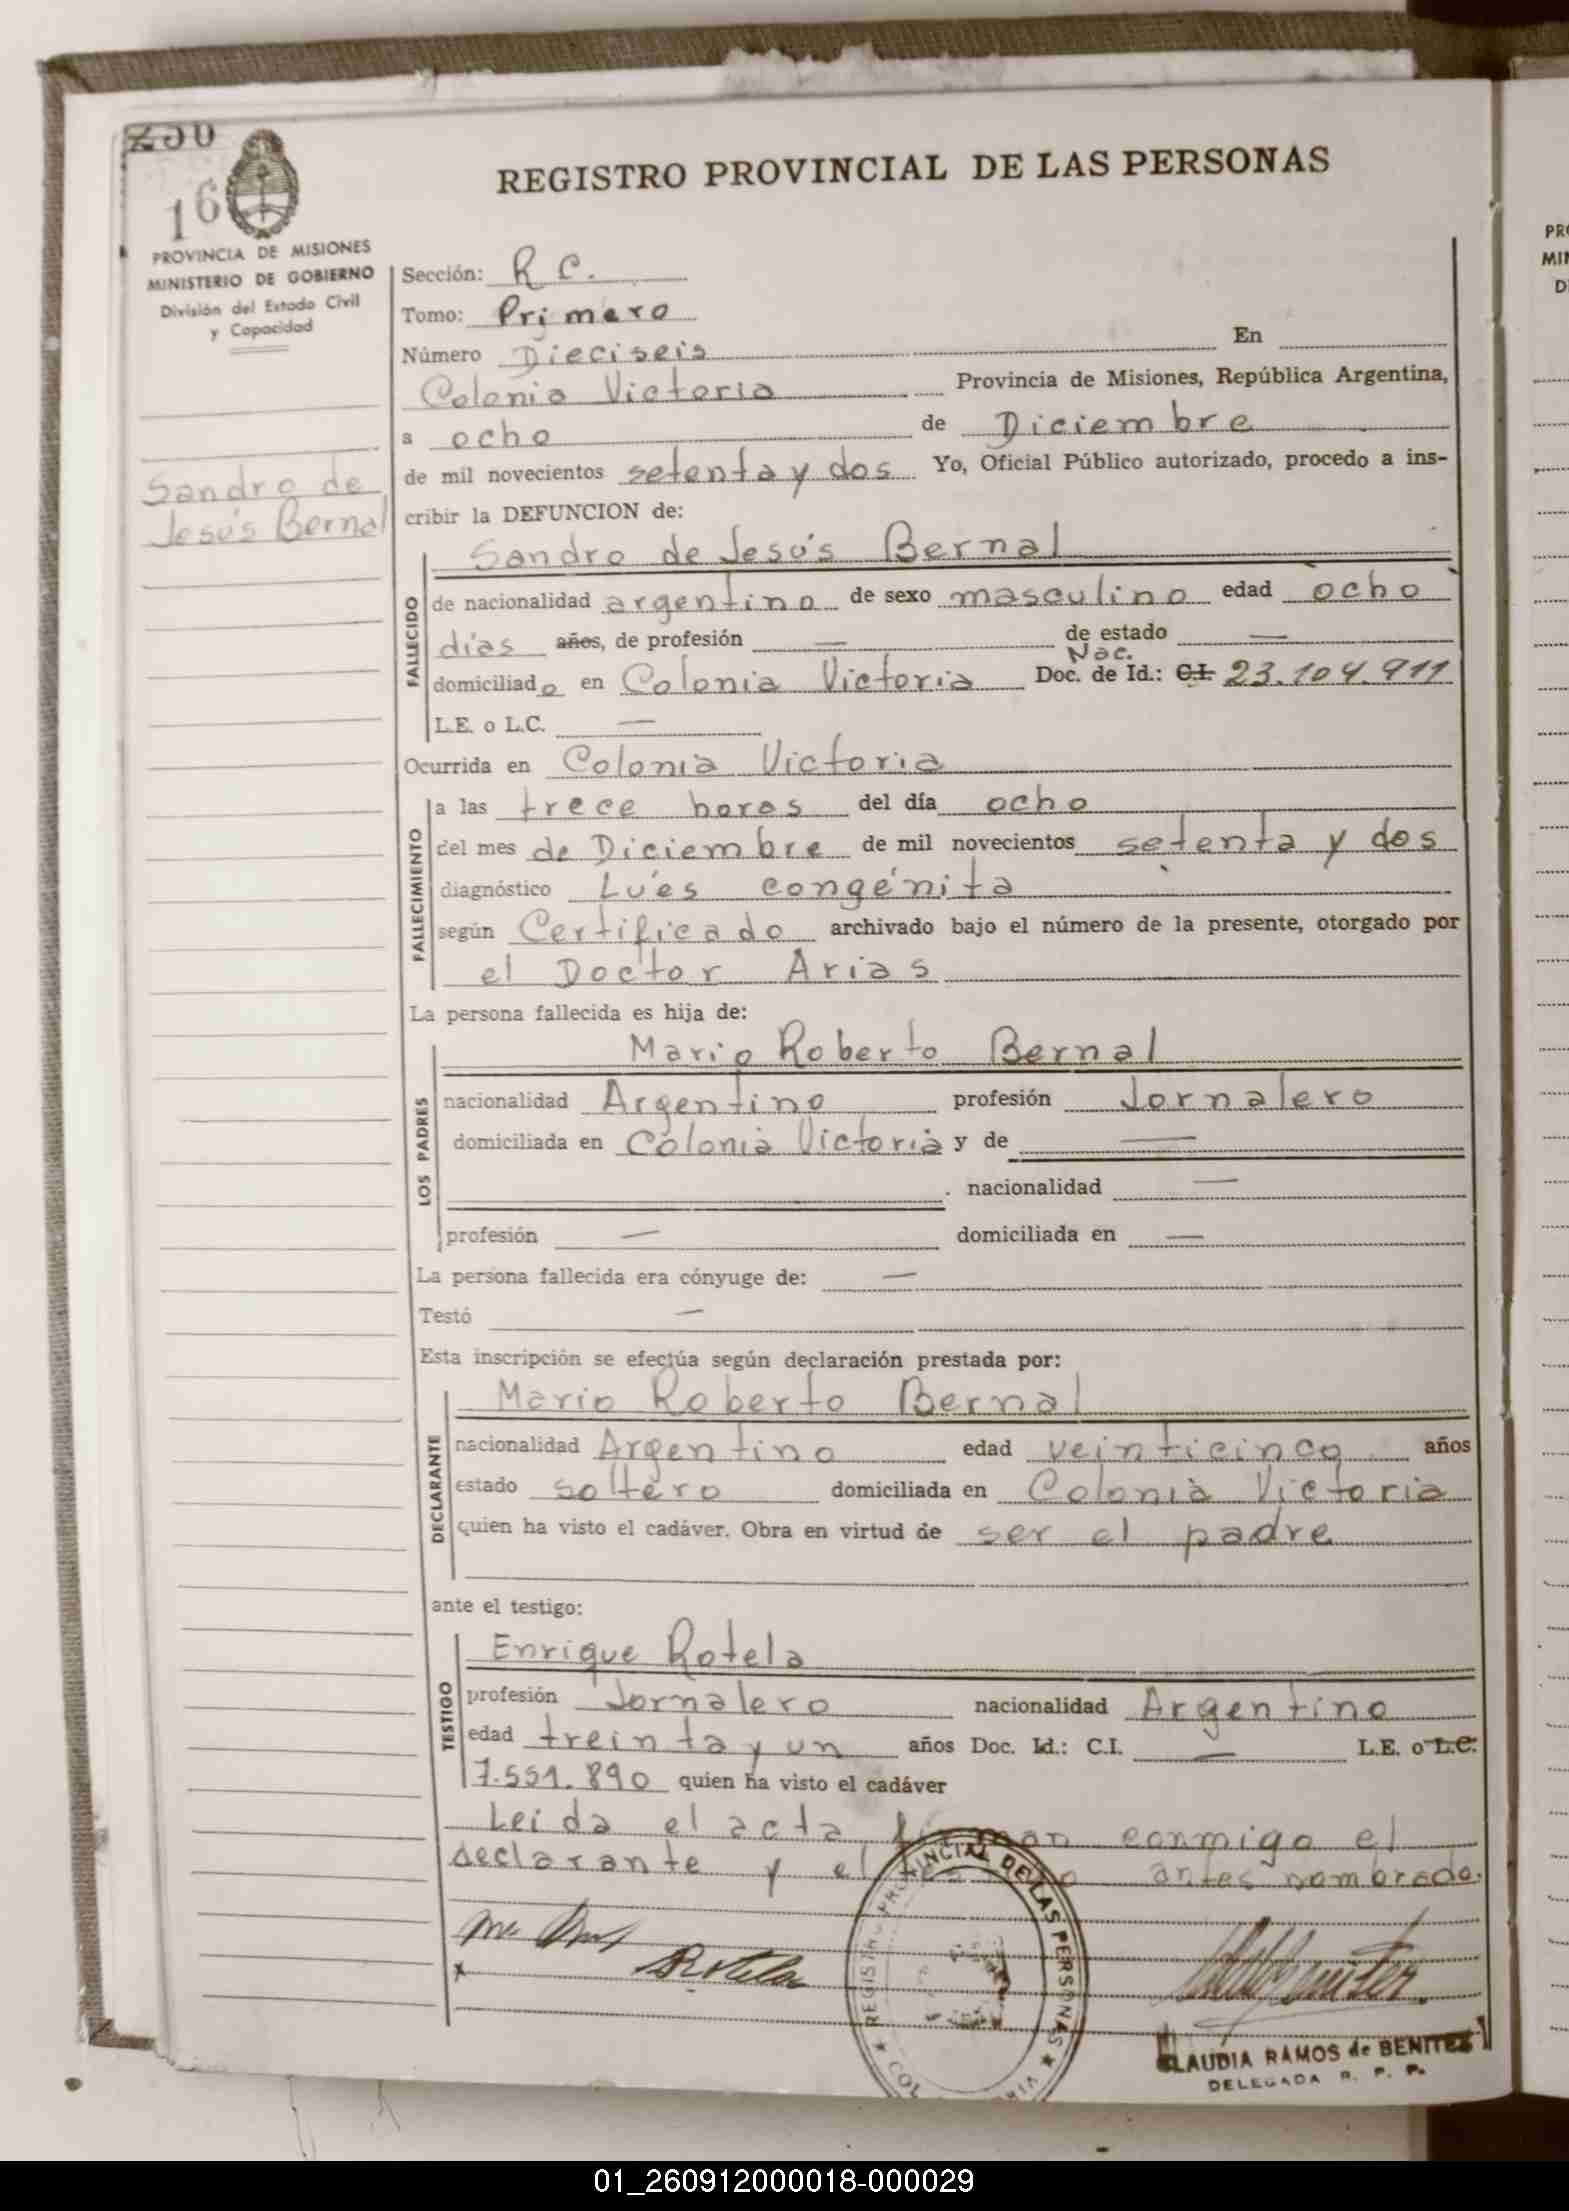 230
16
REGISTRO PROVINCIAL DE LAS PERSONAS
PROVINCIA DE MISIONES
MINISTERIO DE GOBIERNO
División del Estado Civil
y Capacidad
Sandro de
Jesús Bernal
Sección: R C.
Tomo: Primero
Número Dieciseis En
Colonia Victoria Provincia de Misiones, República Argentina,
a ocho de Diciembre
de mil novecientos setenta y dos Yo, Oficial Público autorizado, procedo a ins-
cribir la DEFUNCION de:
FALLECIDO
Sandro de Jesús Bernal
de nacionalidad argentino de sexo masculino edad ocho
días años, de profesión — de estado —
Nac.
domiciliado en Colonia Victoria Doc. de Id.: C.I. 23.104.911
L.E. o L.C. —
Ocurrida en Colonia Victoria
FALLECIMIENTO
a las trece horas del día ocho
del mes de Diciembre de mil novecientos setenta y dos
diagnóstico Lúes congénita
según Certificado archivado bajo el número de la presente, otorgado por
el Doctor Arias
La persona fallecida es hija de:
LOS PADRES
Mario Roberto Bernal
nacionalidad Argentino profesión Jornalero
domiciliada en Colonia Victoria y de —
. nacionalidad —
profesión — domiciliada en —
La persona fallecida era cónyuge de: —
Testó —
Esta inscripción se efectúa según declaración prestada por:
DECLARANTE
Mario Roberto Bernal
nacionalidad Argentino edad veinticinco años
estado soltero domiciliada en Colonia Victoria
quien ha visto el cadáver. Obra en virtud de ser el padre
ante el testigo:
TESTIGO
Enrique Rotela
profesión Jornalero nacionalidad Argentino
edad treinta y un años Doc. Id.: C.I. — L.E. o L.C.
7.551.890 quien ha visto el cadáver
Leida el acta firman conmigo el
declarante y el antes nombrado.
Rotela
REGISTRO PROVINCIAL DE LAS PERSONAS
CLAUDIA RAMOS de BENITEZ
DELEGADA R. P. P.
PRO
MIN
D
01_260912000018-000029